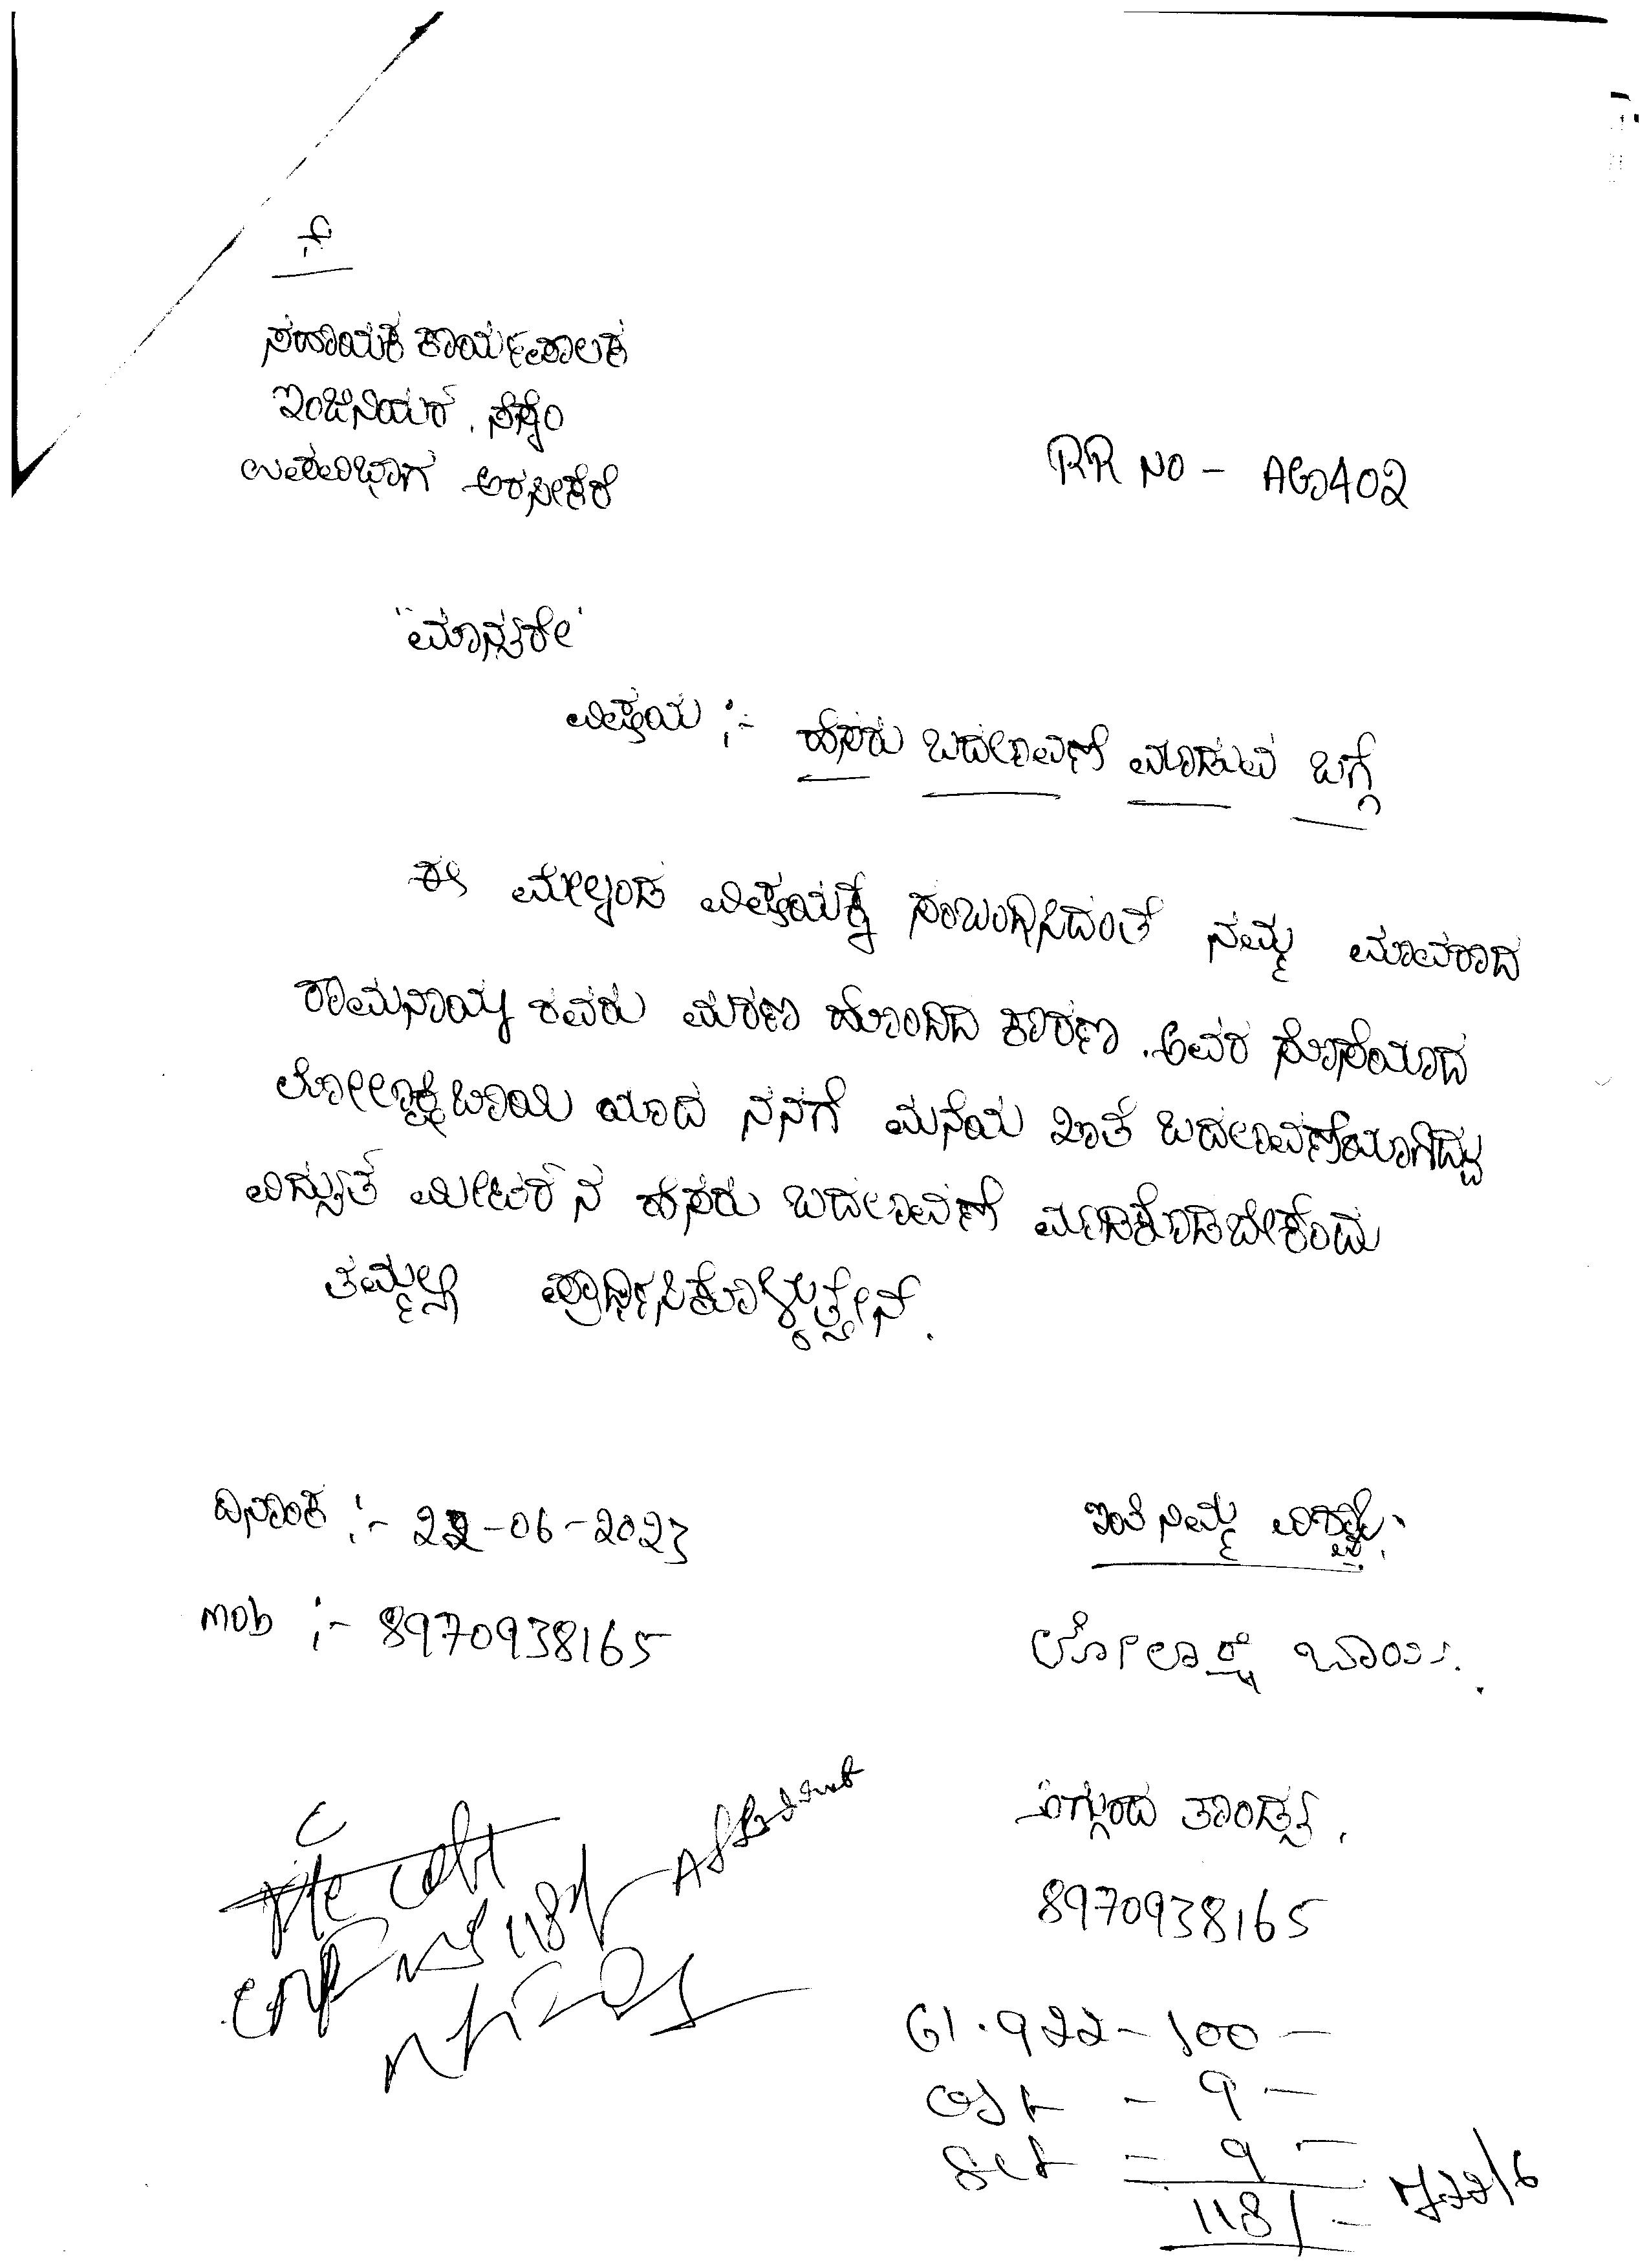 ಗೆ
ಸಹಾಯಕ ಕಾರ್ಯಪಾಲಕ
ಇಂಜಿನಿಯರ್. ಸೆಸ್ಕಂ
ಉಪವಿಭಾಗ ಅರಸೀಕೆರೆ
RR NO - AG402
"ಮಾನ್ಯರೇ"
ವಿಷಯ :- ಹೆಸರು ಬದಲಾವಣೆ ಮಾಡುವ ಬಗ್ಗೆ
ಈ ಮೇಲ್ಕಂಡ ವಿಷಯಕ್ಕೆ ಸಂಬಂಧಿಸಿದಂತೆ ನಮ್ಮ ಮಾವರಾದ
ರಾಮನಾಯ್ಕ ರವರು ಮರಣ ಹೊಂದಿದ ಕಾರಣ. ಅವರ ಸೊಸೆಯಾದ
ಲೋಲಾಕ್ಷಿಬಾಯಿ ಯಾದ ನನಗೆ ಮನೆಯ ಖಾತೆ ಬದಲಾವಣೆಯಾಗಿದ್ದು
ವಿದ್ಯುತ್ ಮೀಟರ್ ನ ಹೆಸರು ಬದಲಾವಣೆ ಮಾಡಿಕೊಡಬೇಕೆಂದು
ತಮ್ಮಲ್ಲಿ ಪ್ರಾರ್ಥಿಸಿಕೊಳ್ಳುತ್ತೇನೆ.
ದಿನಾಂಕ :- 22-06-2023
ಇಂತಿ ನಿಮ್ಮ ವಿಶ್ವಾಸಿ
mob :- 8970938165
ಲೋಲಾಕ್ಷಿ ಬಾಯಿ.
ತಾಂಡ್ಯ.
8970938165
61.922 - 100 -
CGST - 9 -
SGST - 9 -
118/-